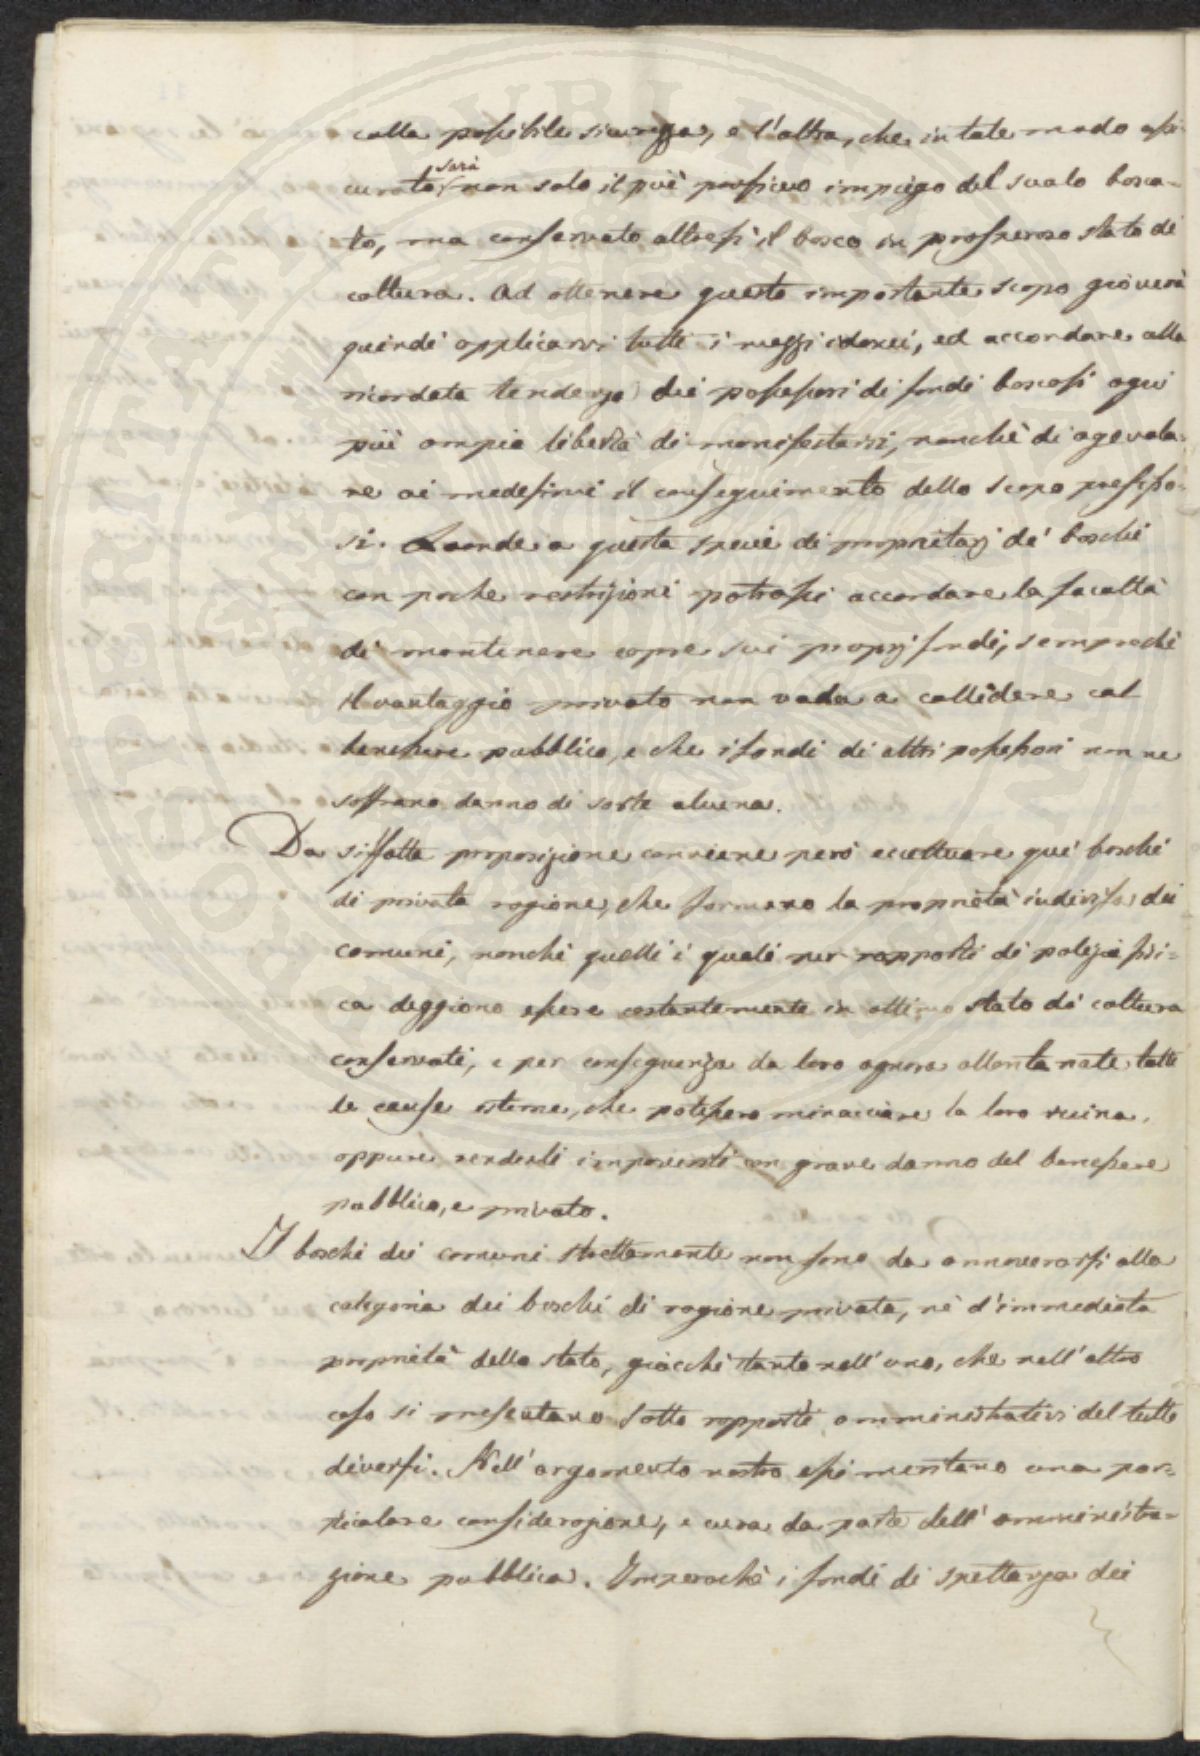 colla possibile sicurezza, e l'altra, che in tale modo assi
curato sarà non solo il più proficuo impiego del suolo bosca-
to, ma conservato altresì il bosco in prosperoso stato di
coltura. Ad ottenere questo importante scopo gioverà
quindi applicarvi tutti i mezzi idonei, ed accordare alla
ricordata tendenza dei possessori di fondi boscosi ogni
più ampia libertà di manifestarsi, nonchè di agevola-
re ai medesimi il conseguimento dello scopo prefisso-
si. Laonde a questa specie di proprietarj de' boschi
con poche restrizioni potrassi accordare la facoltà
di mantenere capre sui proprj fondi, semprochè
il vantaggio privato non vada a collidere col
benessere pubblico, e che i fondi di altri possessori non ne
soffrano danno di sorte alcuna.
Da siffatta proposizione conviene però eccettuare que' boschi
di privata ragione, che formano la proprietà indivisa dei
comuni, nonchè quelli i quali per rapporti di polizia fisi-
ca deggiono essere costantemente in ottimo stato di coltura
conservati, e per conseguenza da loro ognora allontanate tutte
le cause esterne, che potessero minacciare la loro ruina,
oppure renderli improventi con grave danno del benessere
pubblico, e privato.
I boschi dei comuni strettamente non sono da annoverarsi alla
categoria dei boschi di ragione privata, nè d'immediata
proprietà dello stato, giacchè tanto nell'uno, che nell'altro
caso si presentano sotto rapporti amministrativi del tutto
diversi. Nell'argomento nostro essi meritano una par-
ticolare considerazione, e cura da parte dell'amministra-
zione pubblica. Imperochè i fondi di spettanza dei